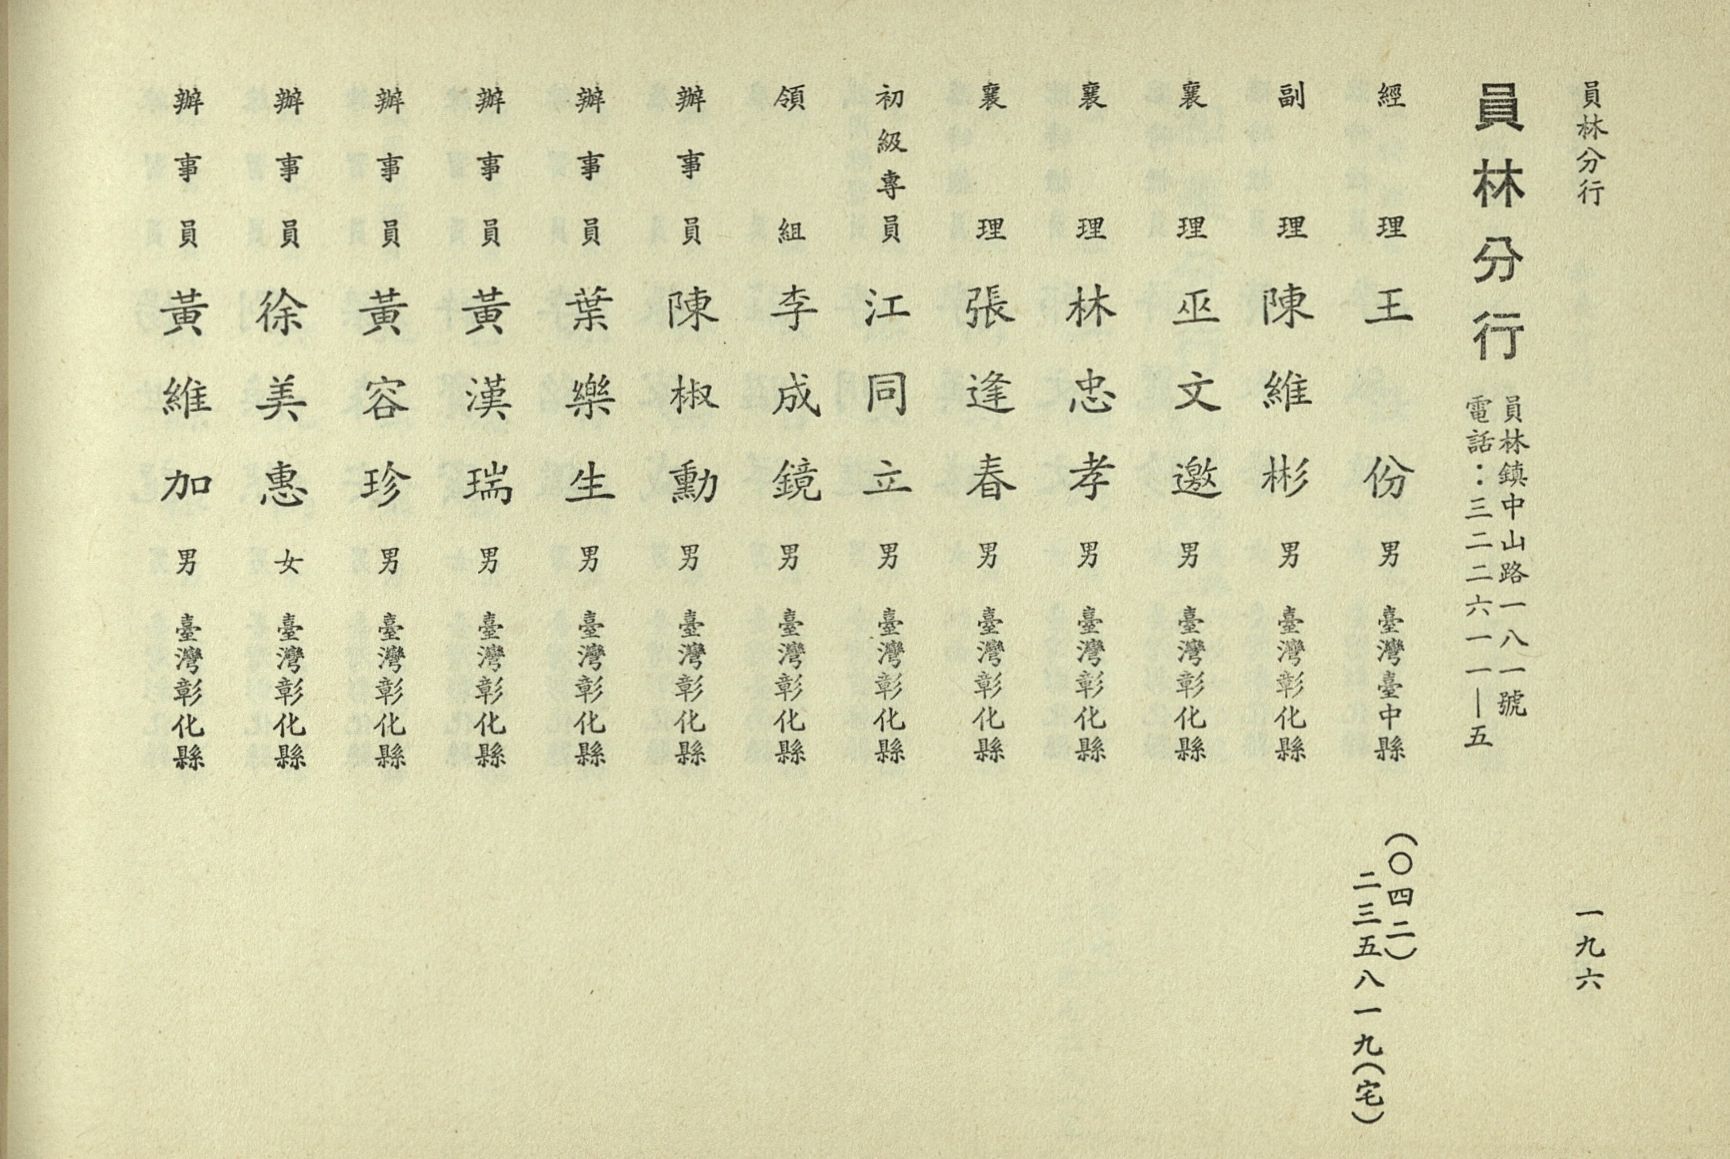 員林分行
一九六
員林分行
員林鎮中山路一八一號
電話：三二二六一一—五
經理 王份 男 臺灣臺中縣 (〇四二)
二三五八一九(宅)
副理 陳維彬 男 臺灣彰化縣
襄理 巫文邀 男 臺灣彰化縣
襄理 林忠孝 男 臺灣彰化縣
襄理 張逢春 男 臺灣彰化縣
初級專員 江同立 男 臺灣彰化縣
領組 李成鏡 男 臺灣彰化縣
辦事員 陳椒勳 男 臺灣彰化縣
辦事員 葉樂生 男 臺灣彰化縣
辦事員 黃漢瑞 男 臺灣彰化縣
辦事員 黃容珍 男 臺灣彰化縣
辦事員 徐美惠 女 臺灣彰化縣
辦事員 黃維加 男 臺灣彰化縣